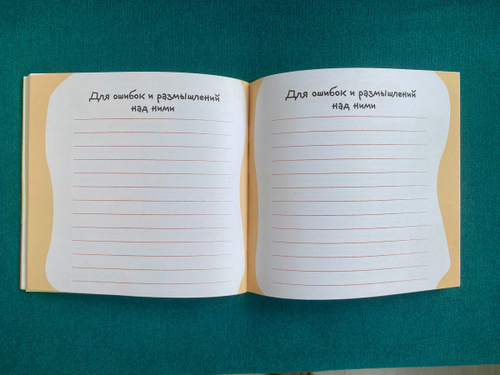 Для ошибок и размышлений
над ними
Для ошибок и размышлений
над ними